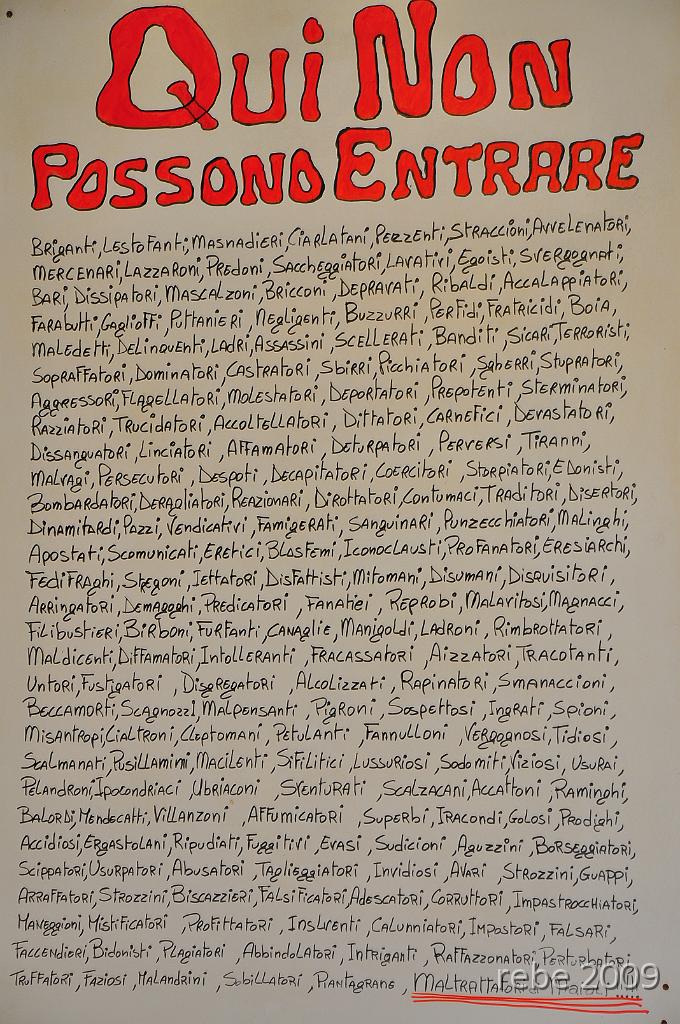 Qui Non
Possono Entrare
Briganti, Lestofanti, Masnadieri, Ciarlatani, Pezzenti, Straccioni, Avvelenatori,
Mercenari, Lazzaroni, Predoni, Saccheggiatori, Lavativi, Egoisti, Svergognati,
Bari, Dissipatori, Mascalzoni, Bricconi, Depravati, Ribaldi, Accalappiatori,
Farabutti, Gaglioffi, Puttanieri, Negligenti, Buzzurri, Perfidi, Fratricidi, Boia,
Maledetti, Delinquenti, Ladri, Assassini, Scellerati, Banditi, Sicari, Terroristi,
Sopraffatori, Dominatori, Castratori, Sbirri, Picchiatori, Sgherri, Stupratori,
Aggressori, Flagellatori, Molestatori, Deportatori, Prepotenti, Sterminatori,
Razziatori, Trucidatori, Accoltellatori, Dittatori, Carnefici, Devastatori,
Dissanguatori, Linciatori, Affamatori, Deturpatori, Perversi, Tiranni,
Malvagi, Persecutori, Despoti, Decapitatori, Coercitori, Storpiatori, Edonisti,
Bombardatori, Deragliatori, Reazionari, Dirottatori, Contumaci, Traditori, Disertori,
Dinamitardi, Pazzi, Vendicativi, Famigerati, Sanguinari, Punzecchiatori, Malinghi,
Apostati, Scomunicati, Eretici, Blasfemi, Iconoclausti, Profanatori, Eresiarchi,
Fedifraghi, Stregoni, Iettatori, Disfattisti, Mitomani, Disumani, Disquisitori,
Arringatori, Demagoghi, Predicatori, Fanatici, Reprobi, Malavitosi, Magnacci,
Filibustieri, Birboni, Furfanti, Canaglie, Manigoldi, Ladroni, Rimbrottatori,
Maldicenti, Diffamatori, Intolleranti, Fracassatori, Aizzatori, Tracotanti,
Untori, Fustigatori, Disgregatori, Alcolizzati, Rapinatori, Smanaccioni,
Beccamorti, Scagnozzi, Malpensanti, Pigroni, Sospettosi, Ingrati, Spioni,
Misantropi, Cialtroni, Cleptomani, Petulanti, Fannulloni, Vergognosi, Tidiosi,
Scalmanati, Pusillamini, Macilenti, Sifilitici, Lussuriosi, Sodomiti, Viziosi, Usurai,
Pelandroni, Ipocondriaci, Ubriaconi, Sventurati, Scalzacani, Accattoni, Raminghi,
Balordi, Mendecatti, Villanzoni, Affumicatori, Superbi, Iracondi, Golosi, Prodighi,
Accidiosi, Ergastolani, Ripudiati, Fuggitivi, Evasi, Sudicioni, Aguzzini, Borseggiatori,
Scippatori, Usurpatori, Abusatori, Taglieggiatori, Invidiosi, Avari, Strozzini, Guappi,
Arraffatori, Strozzini, Biscazzieri, Falsificatori, Adescatori, Corruttori, Impastrocchiatori,
Maneggioni, Mistificatori, Profittatori, Insolventi, Calunniatori, Impostori, Falsari,
Faccendieri, Bidonisti, Plagiatori, Abbindolatori, Intriganti, Raffazzonatori, Perturbatori
Truffatori, Faziosi, Malandrini, Sobillatori, Piantagrane, Maltrattatori di
rebe 2009